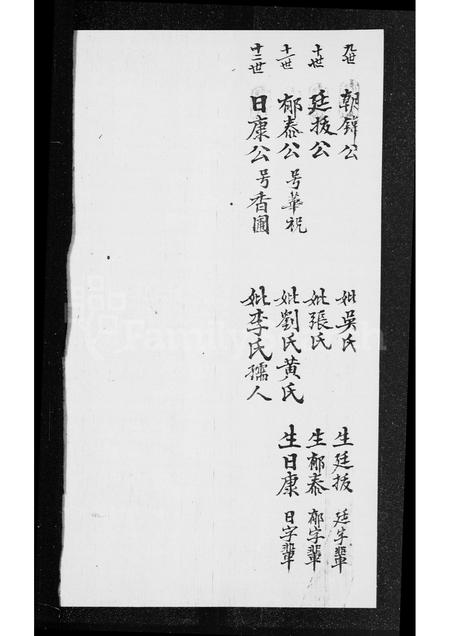 九世 朝錦公 妣吳氏 生廷拔 廷字輩
十世 廷拔公 妣張氏 生郁泰 郁字輩
十一世 郁泰公 号華祝 妣劉氏黄氏 生日康 日字輩
十二世 日康公 号香圃 妣李氏孺人
FamilySearch